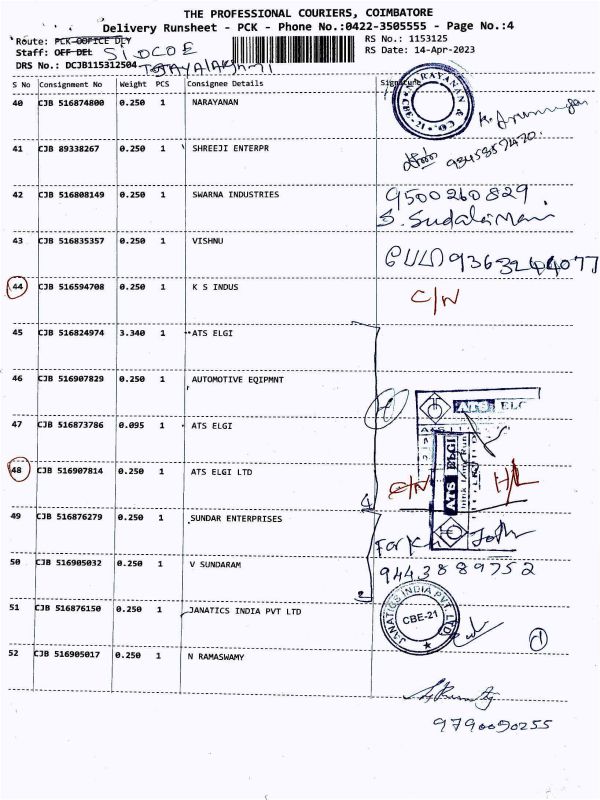 THE PROFESSIONAL COURIERS, COIMBATORE
Delivery Runsheet - PCK - Phone No.:0422-3505555 - Page No.:4
Route: PCK-OOFICE DLY SIDCOE RS No.: 1153125
Staff: OFF DEL RS Date: 14-Apr-2023
DRS No.: DCJB115312504
S No Consignment No Weight PCS Consignee Details Signature
40 CJB 516874800 0.250 1 NARAYANAN
NARAYANAN & CO. CBE-21
41 CJB 89338267 0.250 1 SHREEJI ENTERPR
42 CJB 516808149 0.250 1 SWARNA INDUSTRIES 9500260829
S. Sudalaimani
43 CJB 516835357 0.250 1 VISHNU 9363244077
44 CJB 516594708 0.250 1 K S INDUS C/N
45 CJB 516824974 3.340 1 ATS ELGI
46 CJB 516907829 0.250 1 AUTOMOTIVE EQIPMNT
ATS ELG
47 CJB 516873786 0.095 1 ATS ELGI
48 CJB 516907814 0.250 1 ATS ELGI LTD C/N ATS ELGI H/L
4
49 CJB 516876279 0.250 1 SUNDAR ENTERPRISES
50 CJB 516905032 0.250 1 V SUNDARAM 9443889752
2
51 CJB 516876150 0.250 1 JANATICS INDIA PVT LTD
JANATICS INDIA PVT LTD CBE-21
1
52 CJB 516905017 0.250 1 N RAMASWAMY
9790090255